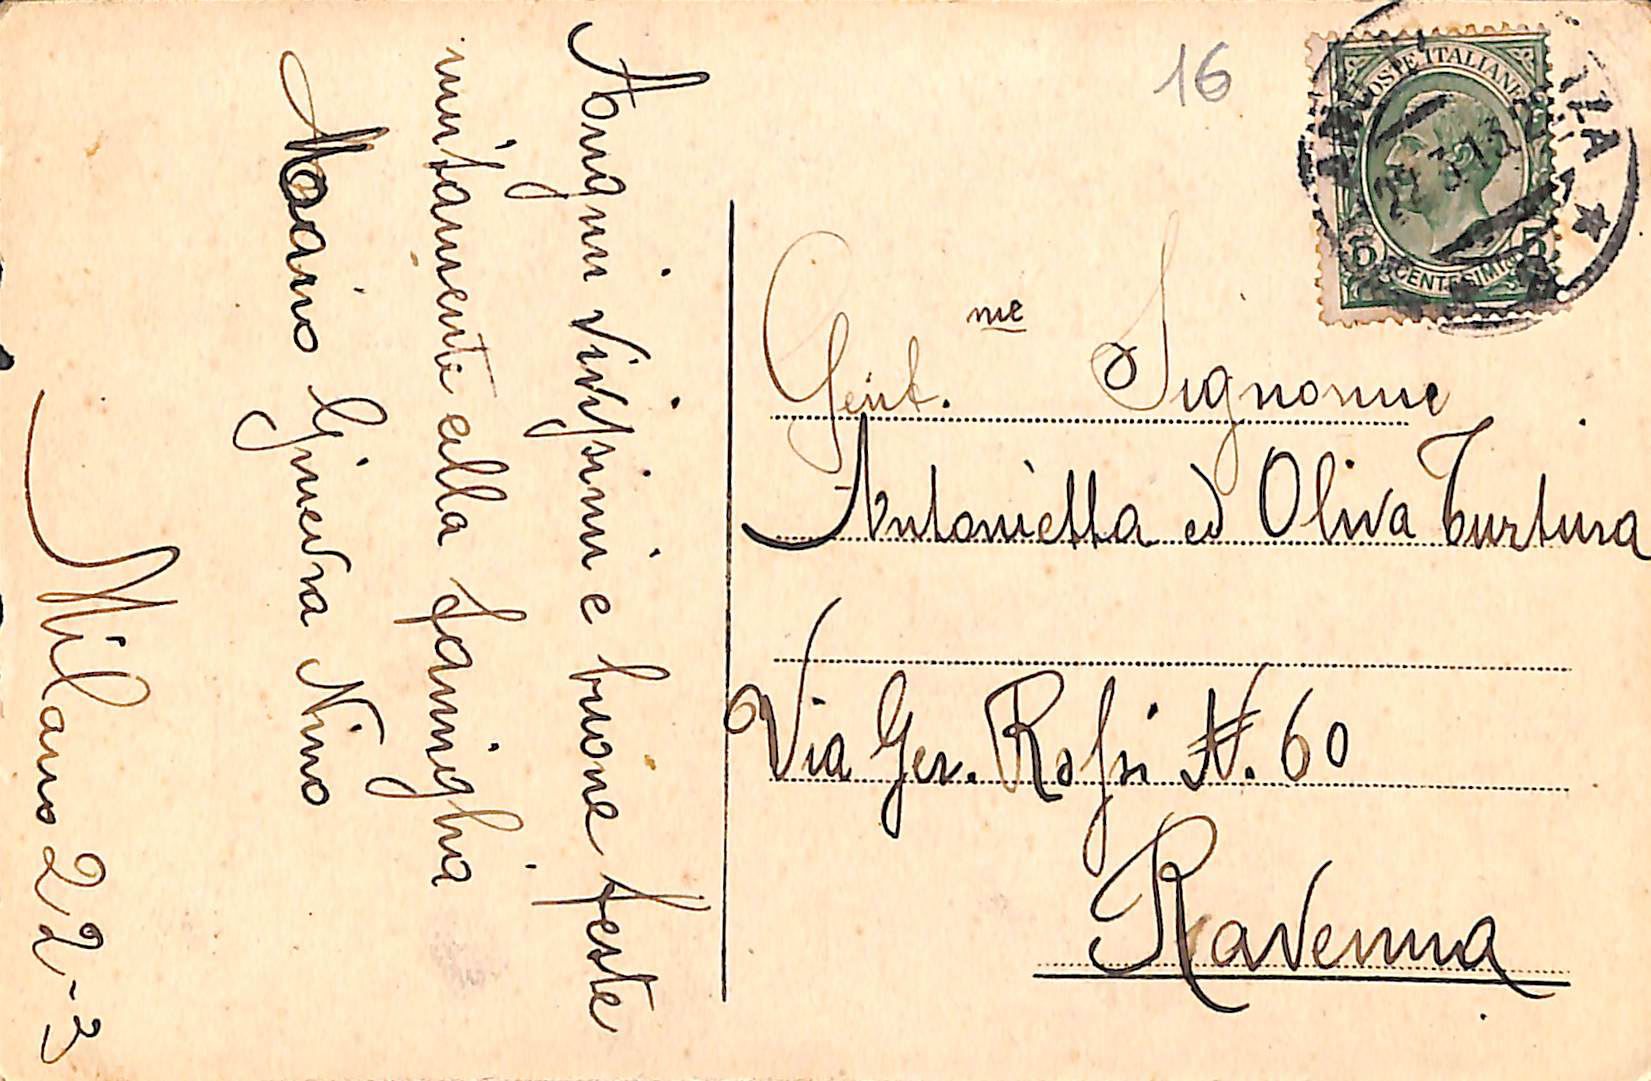 Auguri vivissimi e buone feste
unitamente alla famiglia
Mario Ginevra Nino
Milano 22-3
16
POSTE ITALIANE
5 CENTESIMI 5
22.3.13
Gent.me Signorine
Antonietta ed Oliva Turtura
Via Ger. Rossi N. 60
Ravenna